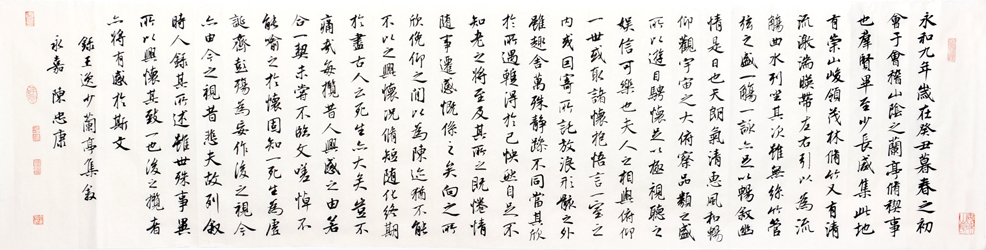 永和九年歲在癸丑暮春之初
會于會稽山陰之蘭亭脩稧事
也羣賢畢至少長咸集此地
有崇山峻領茂林脩竹又有清
流激湍暎帶左右引以為流
觴曲水列坐其次雖無絲竹管
弦之盛一觴一詠亦足以暢叙幽
情是日也天朗氣清惠風和暢
仰觀宇宙之大俯察品類之盛
所以遊目騁懷足以極視聽之
娛信可樂也夫人之相與俯仰
一世或取諸懷抱悟言一室之
內或因寄所託放浪形骸之外
雖趣舍萬殊靜躁不同當其欣
於所遇蹔得於己怏然自足不
知老之將至及其所之既惓情
隨事遷感慨係之矣向之所
欣俛仰之間以為陳迹猶不能
不以之興懷況脩短隨化終期
於盡古人云死生亦大矣豈不
痛哉每攬昔人興感之由若
合一契未嘗不臨文嗟悼不
能喻之於懷固知一死生為虛
誕齊彭殤為妄作後之視今
亦由今之視昔悲夫故列叙
時人錄其所述雖世殊事異
所以興懷其致一也後之攬者
亦將有感於斯文
錄王逸少蘭亭集叙
永嘉陳忠康